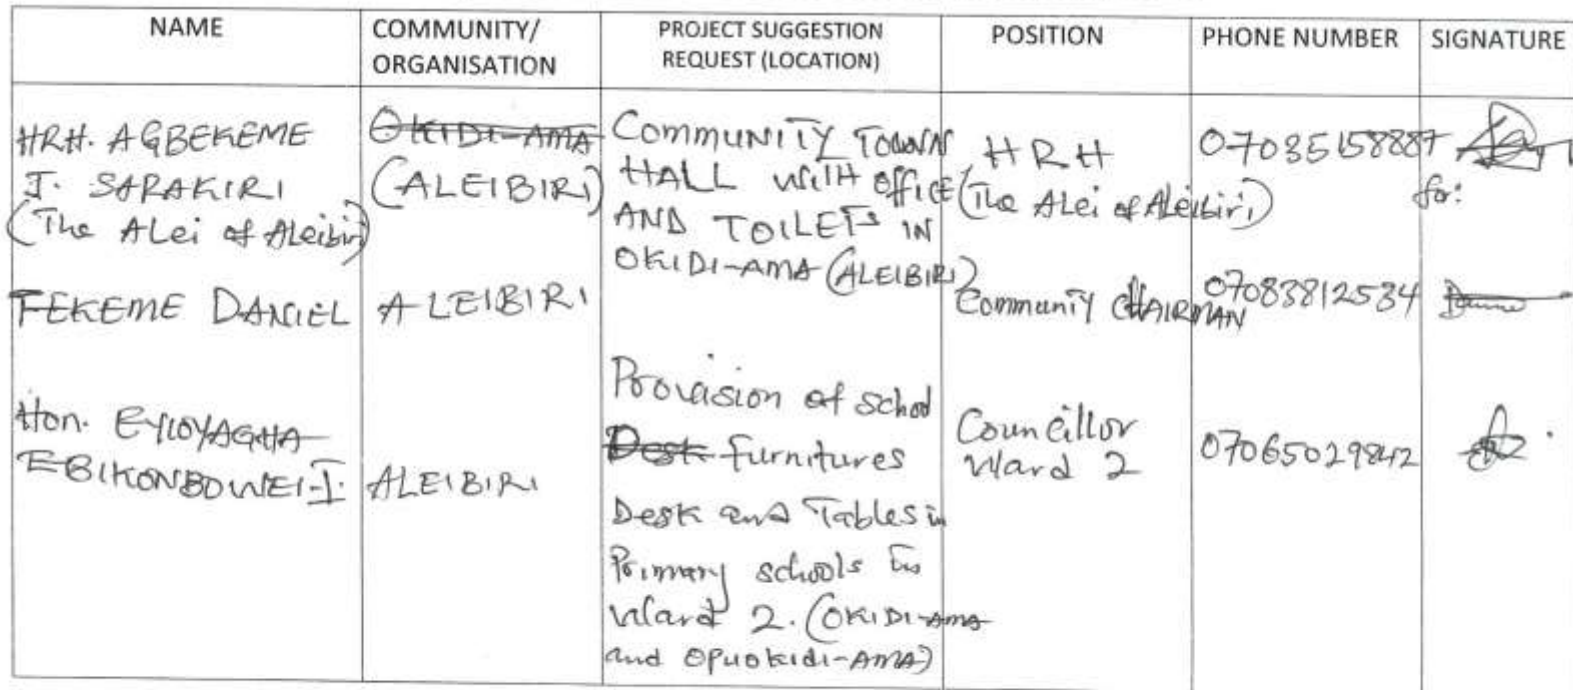 NAME
COMMUNITY/
ORGANISATION
PROJECT SUGGESTION
REQUEST (LOCATION)
POSITION
PHONE NUMBER
SIGNATURE
HRH. AGBEKEME
J. SARAKIRI
(The ALei of ALeibiri)
OKIDI-AMA
(ALEIBIRI)
COMMUNITY TOWN
HALL WITH OFFICE
AND TOILETS IN
OKIDI-AMA (ALEIBIRI)
HRH
(The ALei of ALeibiri)
07035158887
for:
FEKEME DANIEL
ALEIBIRI
Community CHAIRMAN
07083812534
Hon. EYIOYAGHA
EBIKONBOWEI-I.
ALEIBIRI
Provision of school
Desk furnitures
Desk and Tables in
Primary schools in
Ward 2. (OKIDI-AMA
and OPUOKIDI-AMA)
Councillor
Ward 2
07065029842